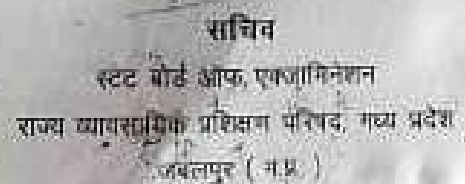 सचिव
स्टेट बोर्ड ऑफ, एक्जामिनेशन
राज्य व्यावसायिक प्रशिक्षण परिषद, मध्य प्रदेश
जबलपुर ( म.प्र. )